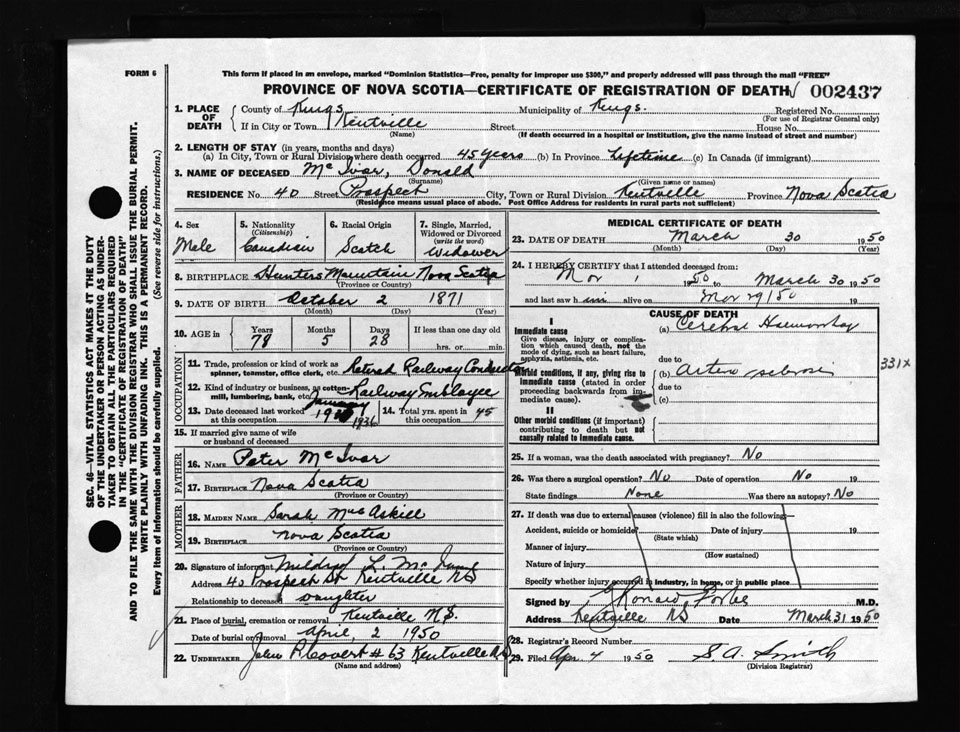 FORM 6
This form if placed in an envelope, marked "Dominion Statistics—Free, penalty for improper use $300," and properly addressed will pass through the mail "FREE"
PROVINCE OF NOVA SCOTIA—CERTIFICATE OF REGISTRATION OF DEATH 002437
1. PLACE OF DEATH County of Kings Municipality of Kings. Registered No.
(For use of Registrar General only)
If in City or Town Kentville Street House No.
(Name) (If death occurred in a hospital or institution, give the name instead of street and number)
2. LENGTH OF STAY (in years, months and days)
(a) In City, Town or Rural Division where death occurred 45 years (b) In Province Lifetime (c) In Canada (if immigrant)
3. NAME OF DECEASED McIvor, Donald
(Surname) (Given name or names)
RESIDENCE No. 40 Street Prospect City, Town or Rural Division Kentville Province Nova Scotia
(Residence means usual place of abode. Post Office Address for residents in rural parts not sufficient)
4. Sex Male
5. Nationality (Citizenship) Canadian
6. Racial Origin Scotch
7. Single, Married, Widowed or Divorced (write the word) Widower
8. BIRTHPLACE Hunters Mountain Nova Scotia
(Province or Country)
9. DATE OF BIRTH October 2 1871
(Month) (Day) (Year)
10. AGE in Years 78 Months 5 Days 28 If less than one day old
hrs. or min.
OCCUPATION
11. Trade, profession or kind of work as spinner, teamster, office clerk, etc. Retired Railway Conductor
12. Kind of industry or business, as cotton-mill, lumbering, bank, etc. Railway Employee
13. Date deceased last worked at this occupation January 1936
14. Total yrs. spent in this occupation 45
15. If married give name of wife or husband of deceased
FATHER
16. NAME Peter McIvor
17. BIRTHPLACE Nova Scotia
(Province or Country)
MOTHER
18. MAIDEN NAME Sarah MacAskill
19. BIRTHPLACE Nova Scotia
(Province or Country)
20. Signature of informant Mildred L. McIvor
Address 40 Prospect St Kentville NS
Relationship to deceased Daughter
21. Place of burial, cremation or removal Kentville N.S.
Date of burial or removal April, 2 1950
22. UNDERTAKER John R Covert # 63 Kentville NS
(Name and address)
MEDICAL CERTIFICATE OF DEATH
23. DATE OF DEATH March 30 1950
(Month) (Day) (Year)
24. I HEREBY CERTIFY that I attended deceased from:
Mar 1 1950 to March 30 1950
and last saw him alive on Mar 29/50 19
CAUSE OF DEATH
I
Immediate cause
Give disease, injury or complication which caused death, not the mode of dying, such as heart failure, asphyxia, asthenia, etc.
(a) Cerebral Haemorrhage
due to
Morbid conditions, if any, giving rise to immediate cause (stated in order proceeding backwards from immediate cause).
(b) Arterio sclerosis
331X
due to
(c)
II
Other morbid conditions (if important) contributing to death but not causally related to immediate cause.
25. If a woman, was the death associated with pregnancy? No
26. Was there a surgical operation? No Date of operation No 19
State findings None Was there an autopsy? No
27. If death was due to external causes (violence) fill in also the following:—
Accident, suicide or homicide? Date of injury 19
(State which)
Manner of injury
(How sustained)
Nature of injury
Specify whether injury occurred in industry, in home, or in public place
Signed by Forbes M.D.
Address Kentville NS Date March 31 1950
28. Registrar's Record Number
29. Filed Apr 4 1950 S. A. Smith
(Division Registrar)
SEC. 46—VITAL STATISTICS ACT MAKES IT THE DUTY
OF THE UNDERTAKER OR PERSON ACTING AS UNDER-
TAKER TO OBTAIN ALL THE PARTICULARS REQUIRED
IN THE "CERTIFICATE OF REGISTRATION OF DEATH"
AND TO FILE THE SAME WITH THE DIVISION REGISTRAR WHO SHALL ISSUE THE BURIAL PERMIT.
WRITE PLAINLY WITH UNFADING INK. THIS IS A PERMANENT RECORD.
Every item of information should be carefully supplied. (See reverse side for instructions.)